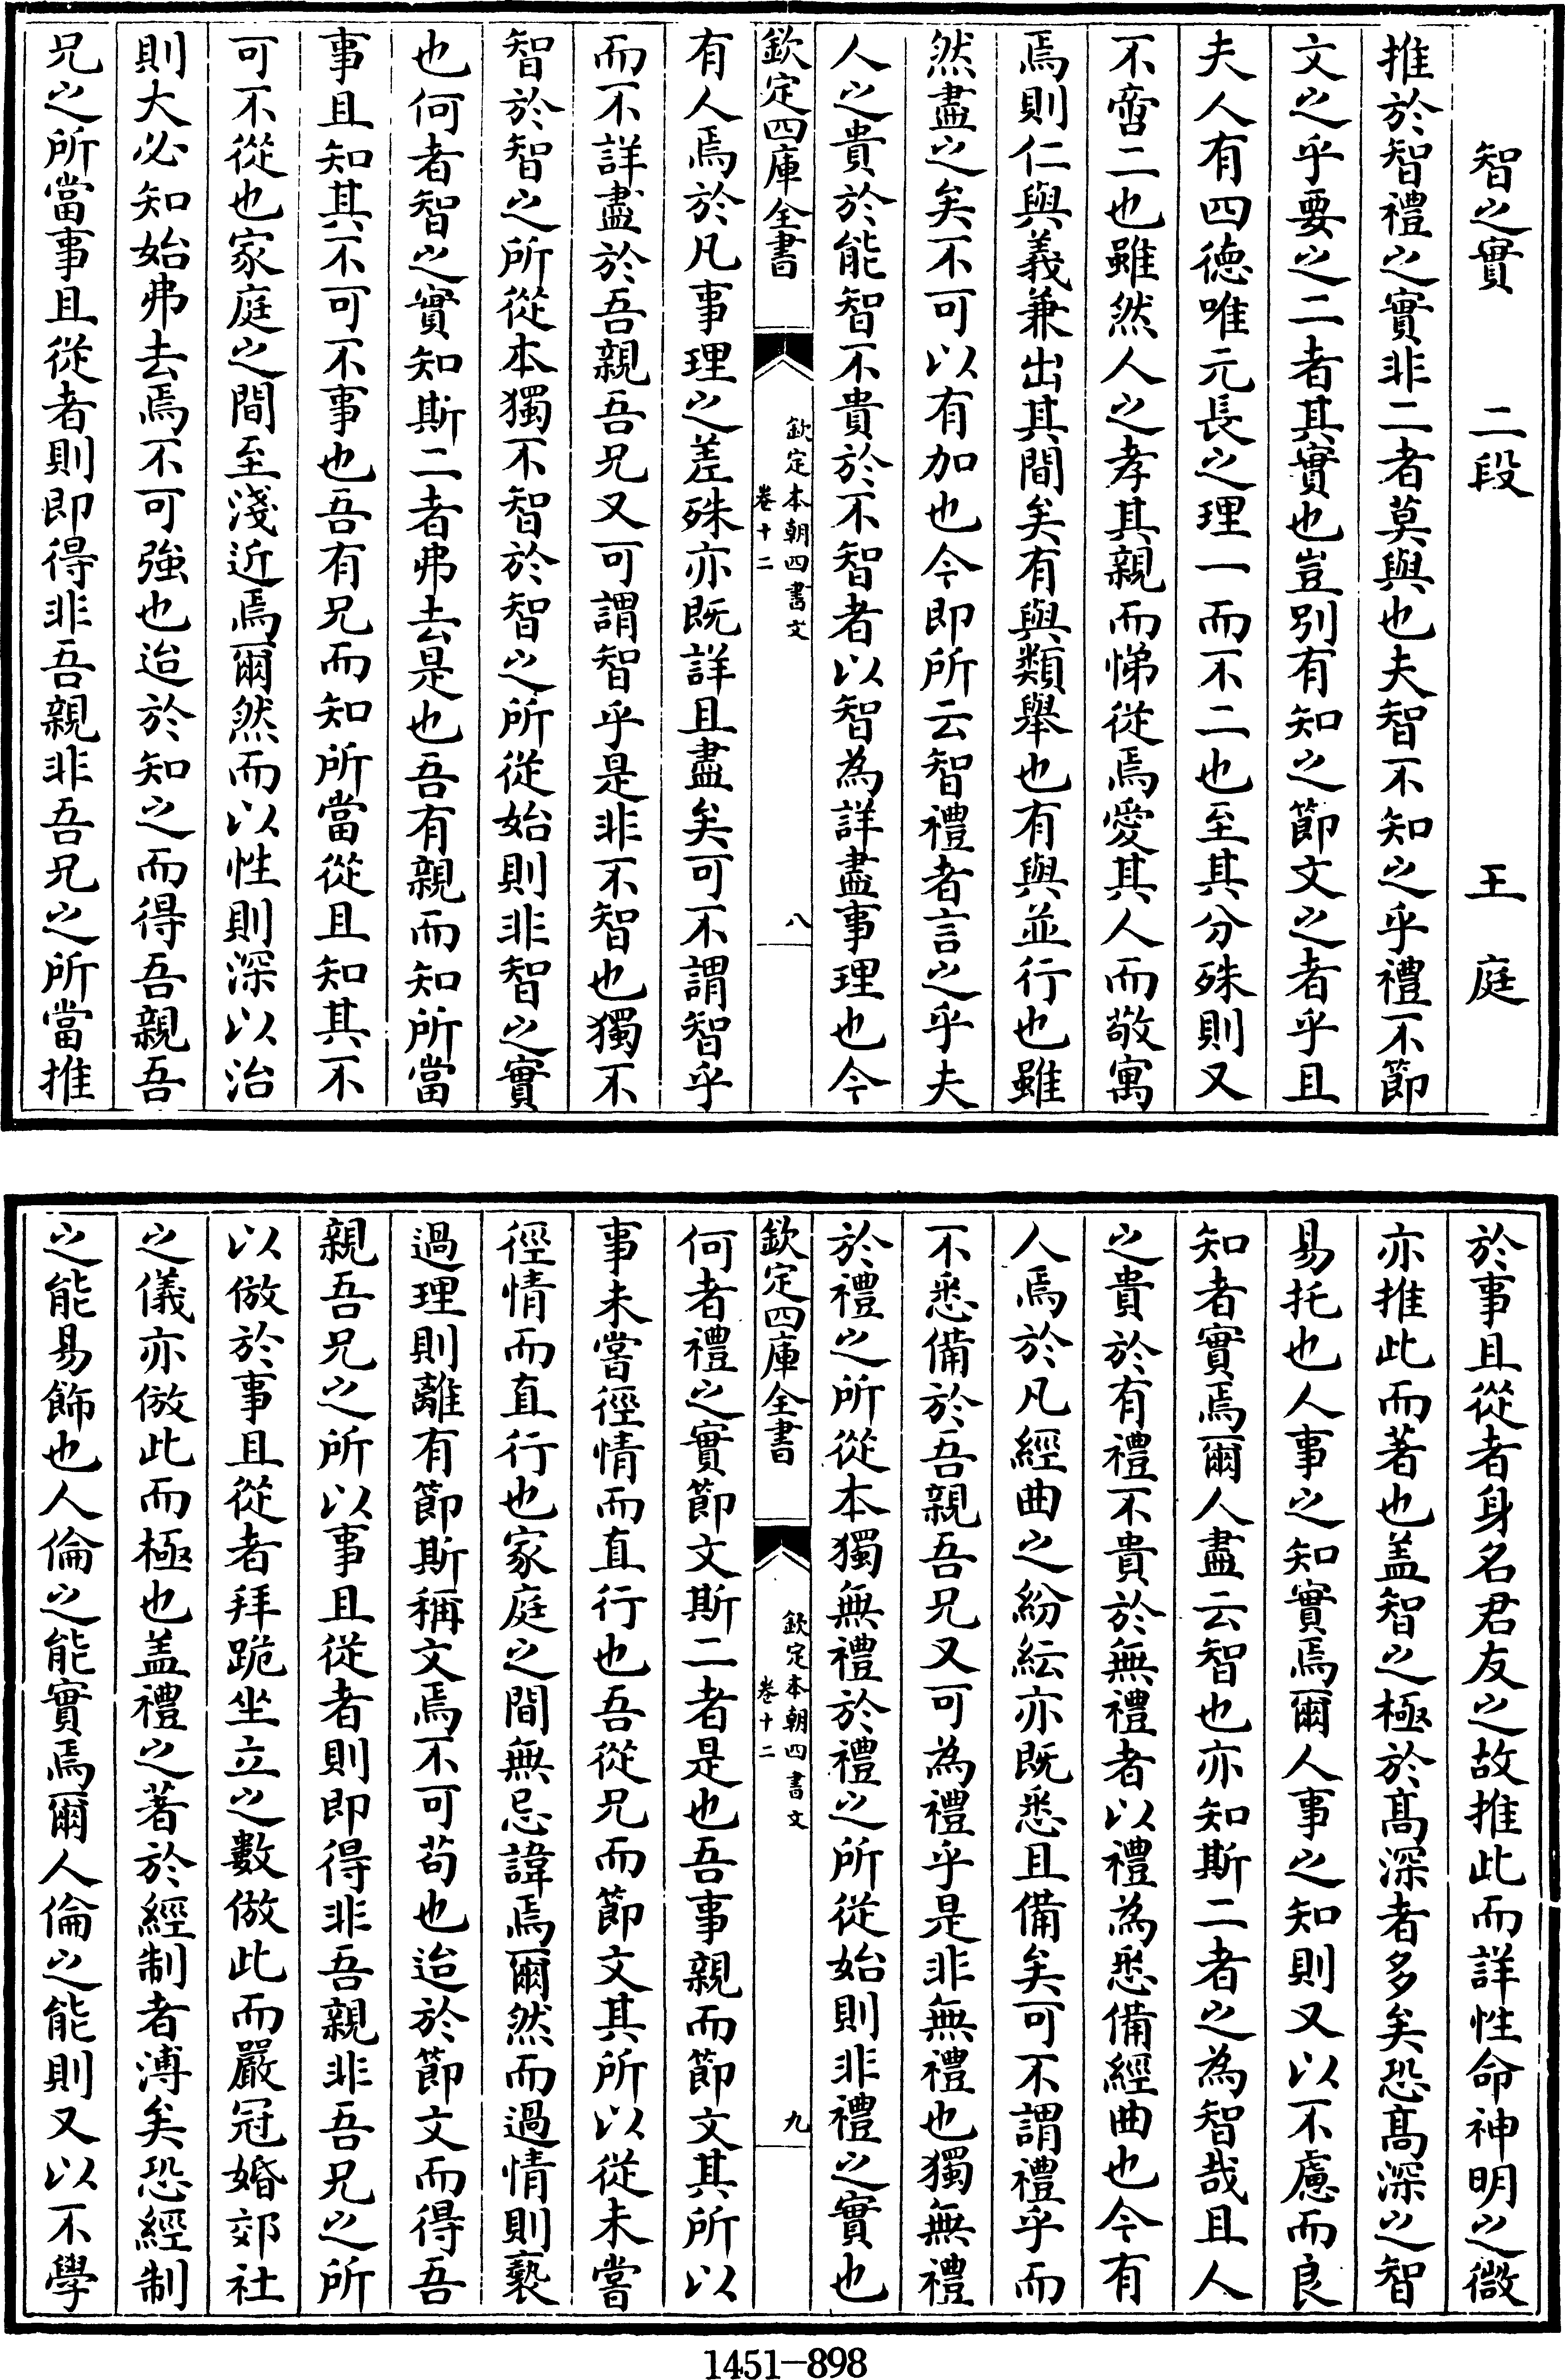 智之實 二段 王庭
推於智禮之實非二者莫與也夫智不知之乎禮不節
文之乎要之二者其實也豈別有知之節文之者乎且
夫人有四德唯元長之理一而不二也至其分殊則又
不啻二也雖然人之孝其親而悌從焉愛其人而敬寓
焉則仁與義兼出其間矣有與類舉也有與並行也雖
然盡之矣不可以有加也今即所云智禮者言之乎夫
人之貴於能智不貴於不智者以智為詳盡事理也今
欽定四庫全書
欽定本朝四書文
卷十二
八
有人焉於凡事理之差殊亦既詳且盡矣可不謂智乎
而不詳盡於吾親吾兄又可謂智乎是非不智也獨不
智於智之所從本獨不智於智之所從始則非智之實
也何者智之實知斯二者弗去是也吾有親而知所當
事且知其不可不事也吾有兄而知所當從且知其不
可不從也家庭之間至淺近焉爾然而以性則深以治
則大必知始弗去焉不可強也迨於知之而得吾親吾
兄之所當事且從者則即得非吾親非吾兄之所當推
於事且從者身名君友之故推此而詳性命神明之微
亦推此而著也盖智之極於髙深者多矣恐髙深之智
易托也人事之知實焉爾人事之知則又以不慮而良
知者實焉爾人盡云智也亦知斯二者之為智哉且人
之貴於有禮不貴於無禮者以禮為悉備經曲也今有
人焉於凡經曲之紛紜亦既悉且備矣可不謂禮乎而
不悉備於吾親吾兄又可為禮乎是非無禮也獨無禮
於禮之所從本獨無禮於禮之所從始則非禮之實也
欽定四庫全書
欽定本朝四書文
卷十二
九
何者禮之實節文斯二者是也吾事親而節文其所以
事未嘗徑情而直行也吾從兄而節文其所以從未嘗
徑情而直行也家庭之間無忌諱焉爾然而過情則褻
過理則離有節斯稱文焉不可苟也迨於節文而得吾
親吾兄之所以事且從者則即得非吾親非吾兄之所
以倣於事且從者拜跪坐立之數倣此而嚴冠婚郊社
之儀亦倣此而極也盖禮之著於經制者溥矣恐經制
之能易飾也人倫之能實焉爾人倫之能則又以不學
1451—898